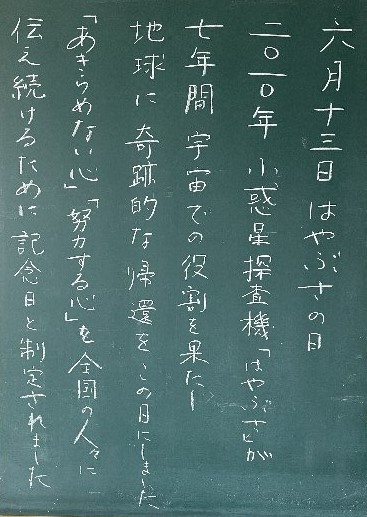 六月十三日 はやぶさの日
二〇一〇年 小惑星探査機「はやぶさ」が
七年間 宇宙での役割を果たし
地球に 奇跡的な帰還をこの日にしました
「あきらめない心」「努力する心」を全国の人々に
伝え続けるために記念日と制定されました